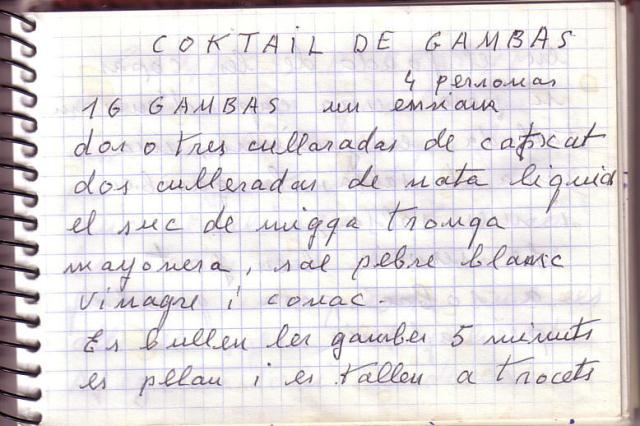 COKTAIL DE GAMBAS
4 personas
16 GAMBAS un enciam
dos o tres cullaradas de catxat
dos culleradas de nata liquida
el suc de migga tronga
mayonera, sal pebre blanc
vinagre i conac.
Es bullen les gambes 5 minuts
es pelan i es tallen a trocets